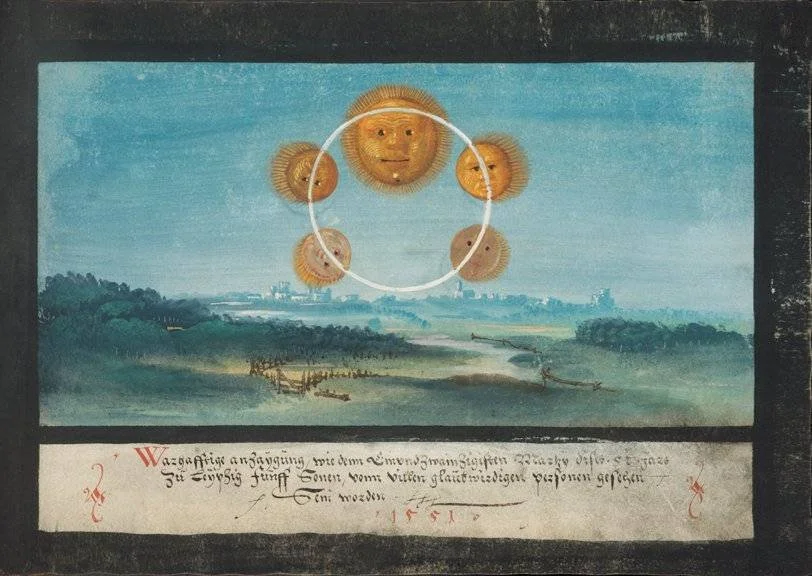 Warhafftige anzaygung, wie denn Einundzwaintzigisten Marty dises 51 jars
zu Leyptzig funff Sonen, vonn villen glaubwirdigen personen gesehen
Seni worden
1551